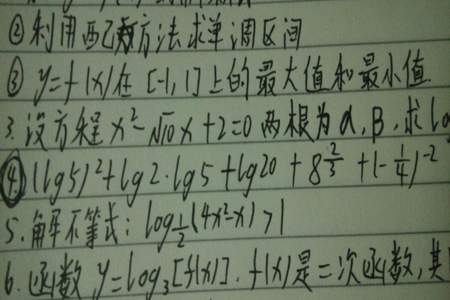 ② 利用配方法求单调区间
③ y=f(x)在[-1,1]上的最大值和最小值
3. 设方程 x²-√10x+2=0 两根为α,β,求lo
④ (lg5)²+lg2·lg5+lg20+8^{2/3}+(-1/4)^{-2}
5. 解不等式: log_{1/2}(4x²-x)>1
6. 函数 y=log₃[f(x)]. f(x)是二次函数,其